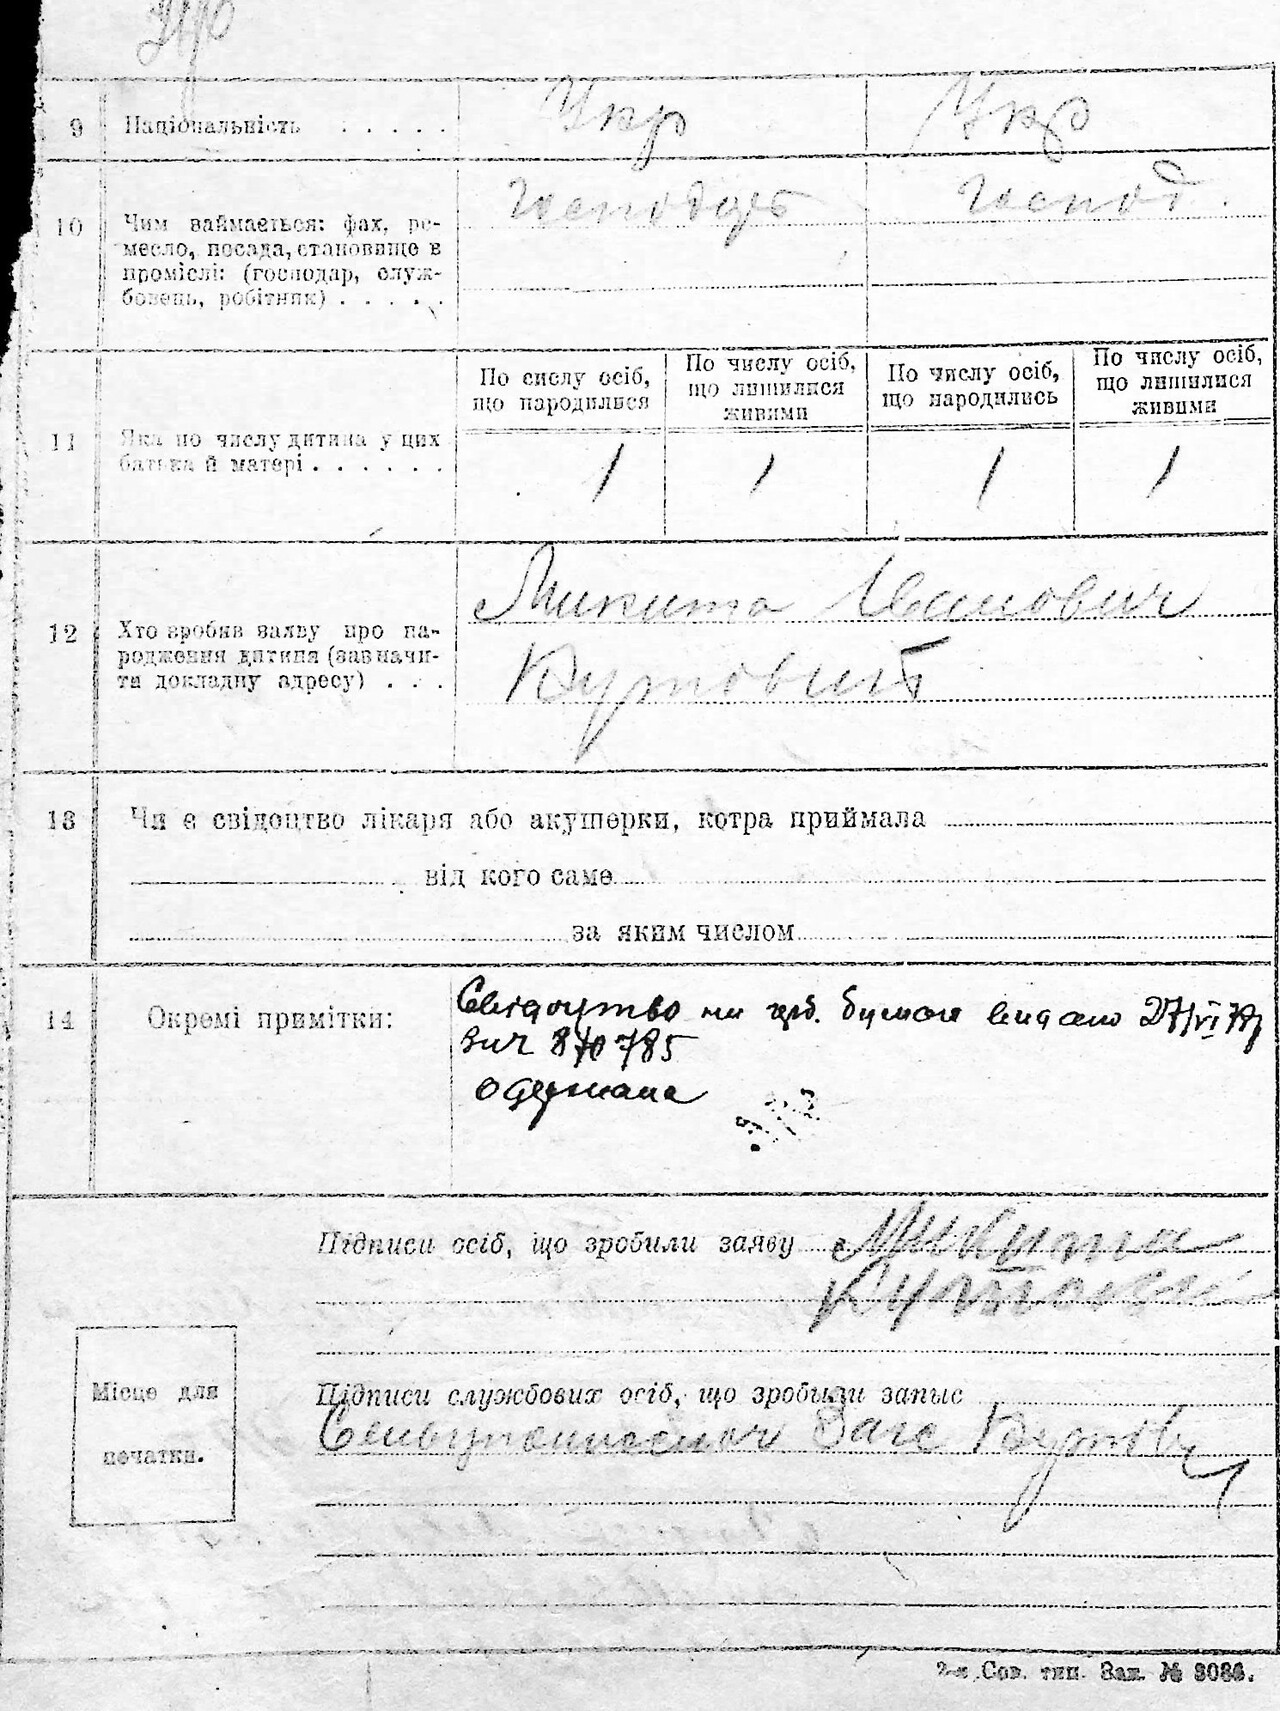 9 Національність . . . . . Укр Укр
10 Чим займається: фах, ре- Господарь Господ.
месло, посада, становище в
проміслі: (господар, служ-
бовець, робітник) . . . . .
По числу осіб, що народилися
По числу осіб, що лишилися живими
По числу осіб, що народились
По числу осіб, що лишилися живими
11 Яка по числу дитина у цих
батька й матері . . . . . . 1 1 1 1
12 Хто зробив заяву про на- Микита Іванович
родження дитини (зазначи- Кутовий
ти докладну адресу) . . .
13 Чи є свідоцтво лікаря або акушерки, котра приймала
від кого саме
за яким числом
14 Окремі примітки: Свідоцтво на бумаги видано 27/VI
785
одержала
Підписи осіб, що зробили заяву Микита
Кутовий
Підписи службових осіб, що зробили запыс
Загс
Місце для
печатки.
2-я Сов. тип. Зак. № 3034.